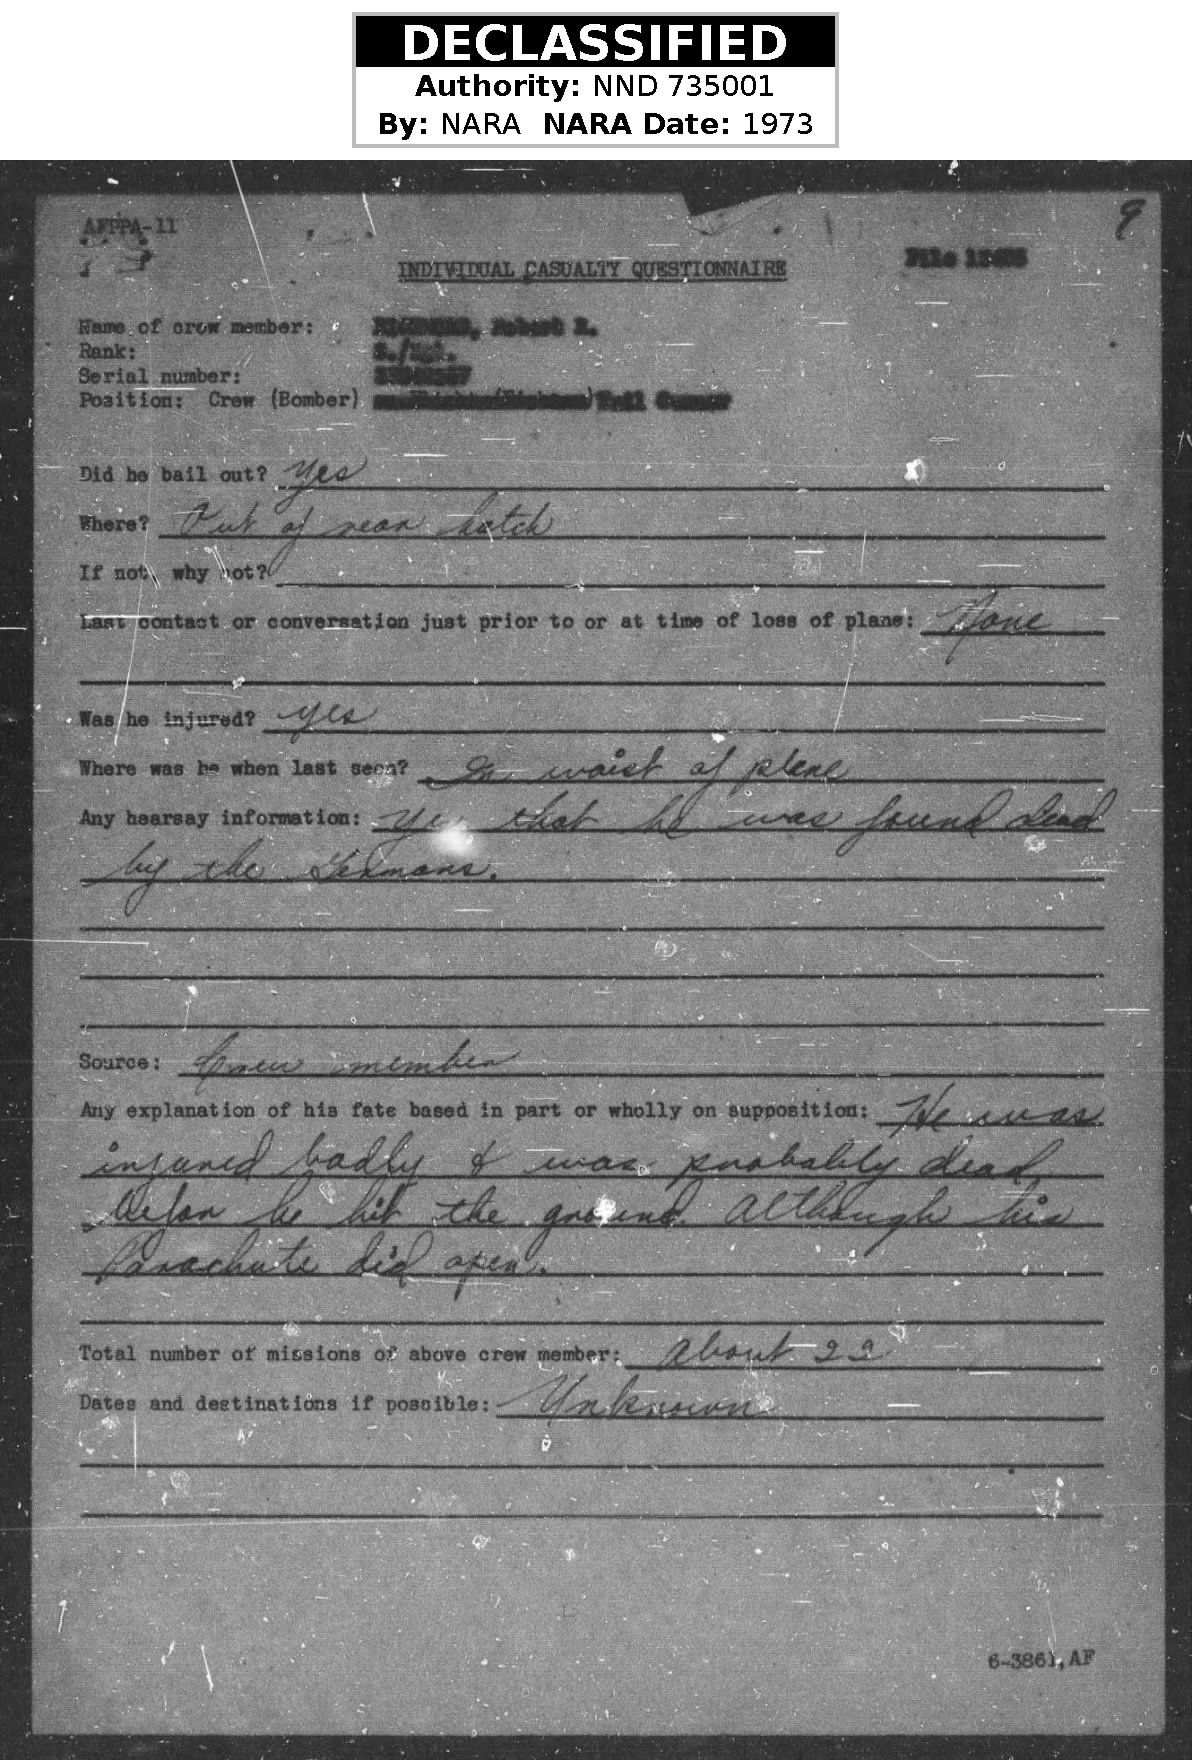 DECLASSIFIED
Authority: NND 735001
By: NARA NARA Date: 1973
9
AFPPA-11
File
INDIVIDUAL CASUALTY QUESTIONNAIRE
Name of crew member: Robert E.
Rank: S./Sgt.
Serial number:
Position: Crew (Bomber) Tail Gunner
Did he bail out? Yes
Where? Out of rear hatch
If not, why not?
Last contact or conversation just prior to or at time of loss of plane: None
Was he injured? yes
Where was he when last seen? In waist of plane
Any hearsay information: yes that he was found dead
by the Germans.
Source: Crew member
Any explanation of his fate based in part or wholly on supposition: He was
injured badly & was probably dead
before he hit the ground. Although his
Parachute did open.
Total number of missions of above crew member: About 22
Dates and destinations if possible: Unknown
6-3861, AF